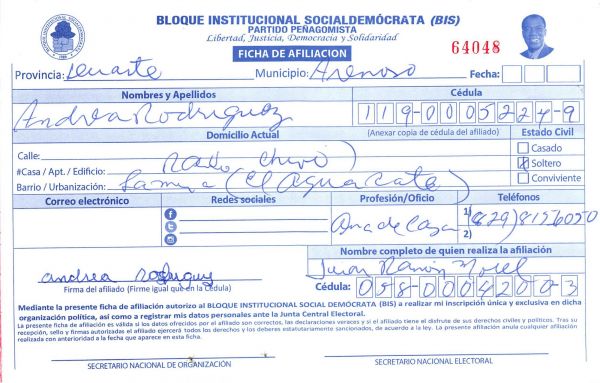 BLOQUE INSTITUCIONAL SOCIALDEMÓCRATA (BIS)
PARTIDO PEÑAGOMISTA
Libertad, Justicia, Democracia y Solidaridad
FICHA DE AFILIACION
64048
Provincia: Duarte Municipio: Arenoso Fecha:
Nombres y Apellidos Cédula
Andrea Rodriguez 119-0005224-9
Domicilio Actual (Anexar copia de cédula del afiliado) Estado Civil
Calle: Casado
#Casa / Apt. / Edificio: X Soltero
Barrio / Urbanización: (El Aguacate) Conviviente
Correo electrónico Redes sociales Profesión/Oficio Teléfonos
Ama de Casa 1) (829) 8156050
2)
Nombre completo de quien realiza la afiliación
andrea rodriguez Juan Ramón Morel
Firma del afiliado (Firme igual que en la Cédula) Cédula: 058-0004200-3
Mediante la presente ficha de afiliación autorizo al BLOQUE INSTITUCIONAL SOCIAL DEMÓCRATA (BIS) a realizar mi inscripción única y exclusiva en dicha
organización política, así como a registrar mis datos personales ante la Junta Central Electoral.
La presente ficha de afiliación es válida si los datos ofrecidos por el afiliado son correctos, las declaraciones veraces y si el afiliado tiene el disfrute de sus derechos civiles y políticos. Tras su
recepción, sello y firmas autorizadas el afiliado ejercerá todos los derechos y los deberes estatutariamente sancionados, de acuerdo a la ley. La presente afiliación anula cualquier afiliación
realizada con anterioridad a la fecha que aparece en esta ficha.
SECRETARIO NACIONAL DE ORGANIZACIÓN SECRETARIO NACIONAL ELECTORAL